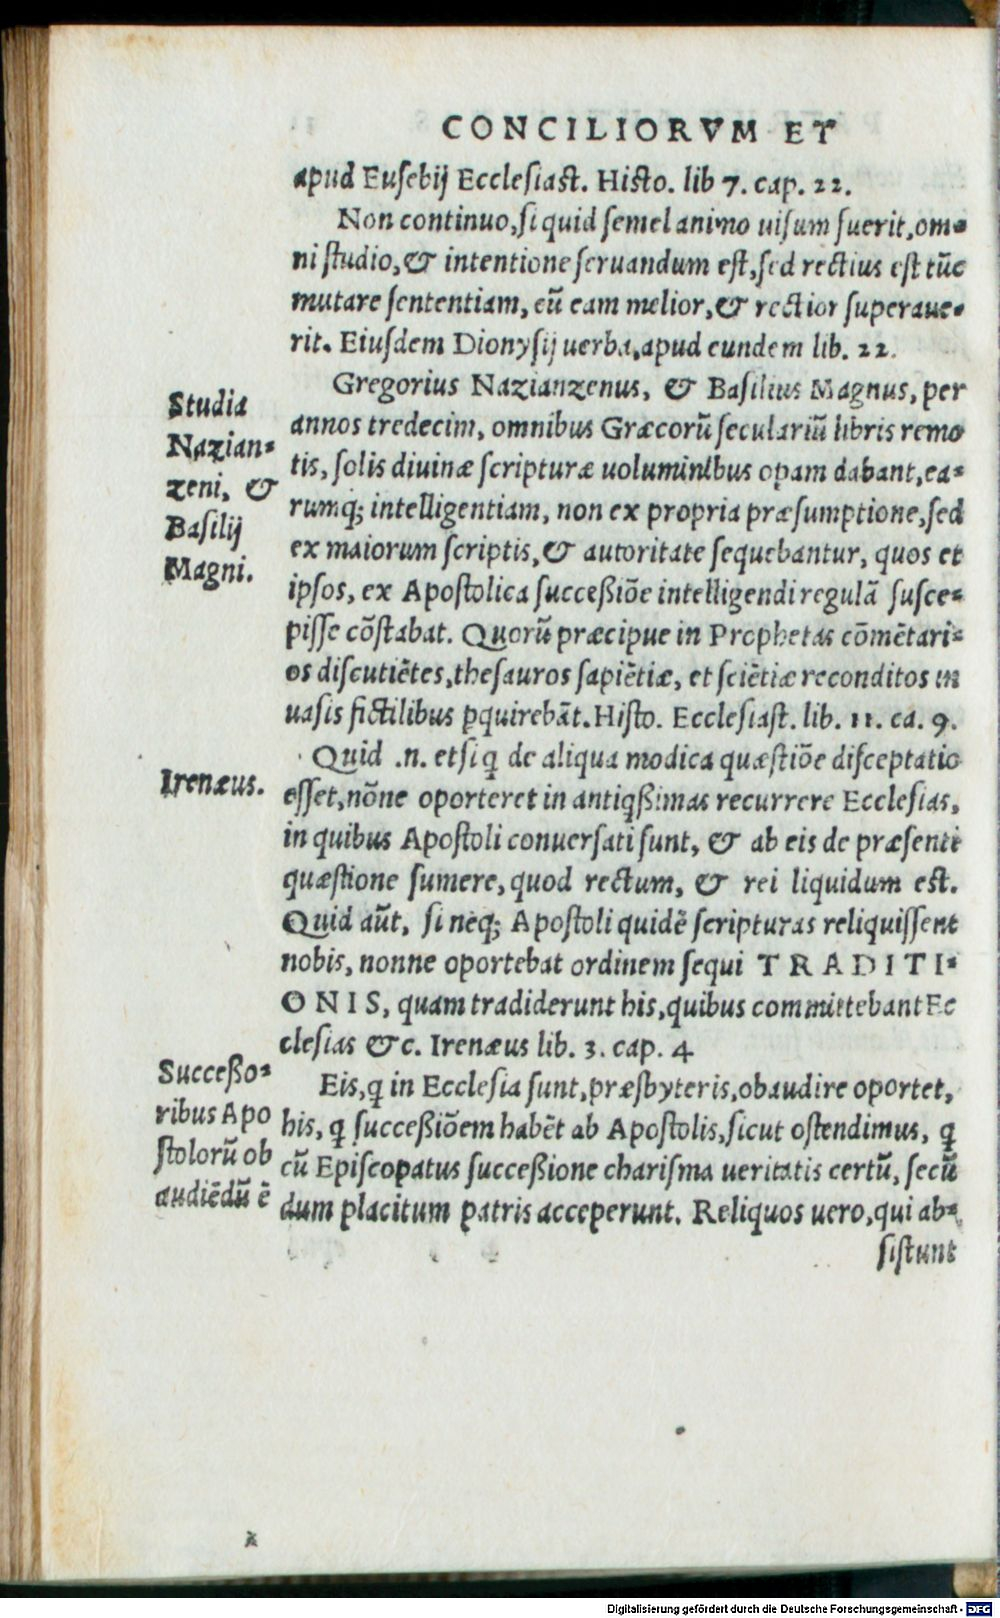 CONCILIORVM ET
apud Eusebij Ecclesiast. Histo. lib 7. cap. 22.
Non continuo, si quid semel animo uisum fuerit, om-
ni studio, & intentione seruandum est, sed rectius est tũc
mutare sententiam, cũ eam melior, & rectior superaue-
rit. Eiusdem Dionysij uerba, apud eundem lib. 22.
Gregorius Nazianzenus, & Basilius Magnus, per
annos tredecim, omnibus Græcorũ seculariũ libris remo
tis, solis diuinæ scripturæ uoluminibus oꝑam dabant, ea-
rumq; intelligentiam, non ex propria præsumptione, sed
ex maiorum scriptis, & autoritate sequebantur, quos et
ipsos, ex Apostolica succeßiõe intelligendi regulã susce-
pisse cõstabat. Quorũ præcipue in Prophetas cõmẽtari-
os discutiẽtes, thesauros sapiẽtiæ, et sciẽtiæ reconditos in
uasis fictilibus ꝑquirebãt. Histo. Ecclesiast. lib. 11. ca. 9.
Quid .n. et si q̃ de aliqua modica quæstiõe disceptatio
esset, nõne oporteret in antiq̃ßimas recurrere Ecclesias,
in quibus Apostoli conuersati sunt, & ab eis de præsenti
quæstione sumere, quod rectum, & rei liquidum est.
Quid aũt, si neq; Apostoli quidẽ scripturas reliquissent
nobis, nonne oportebat ordinem sequi TRADITI-
ONIS, quam tradiderunt his, quibus committebant Ec
clesias &c. Irenæus lib. 3. cap. 4
Eis, q̃ in Ecclesia sunt, præsbyteris, obaudire oportet,
his, q̃ succeßiõem habẽt ab Apostolis, sicut ostendimus, q̃
cũ Episcopatus succeßione charisma ueritatis certũ, secũ
dum placitum patris acceperunt. Reliquos uero, qui ab-
sistunt
Studia
Nazian-
zeni, &
Basilij
Magni.
Irenæus.
Succeßo-
ribus Apo
stolorũ ob
audiẽdũ ẽ
Digitalisierung gefördert durch die Deutsche Forschungsgemeinschaft - DFG